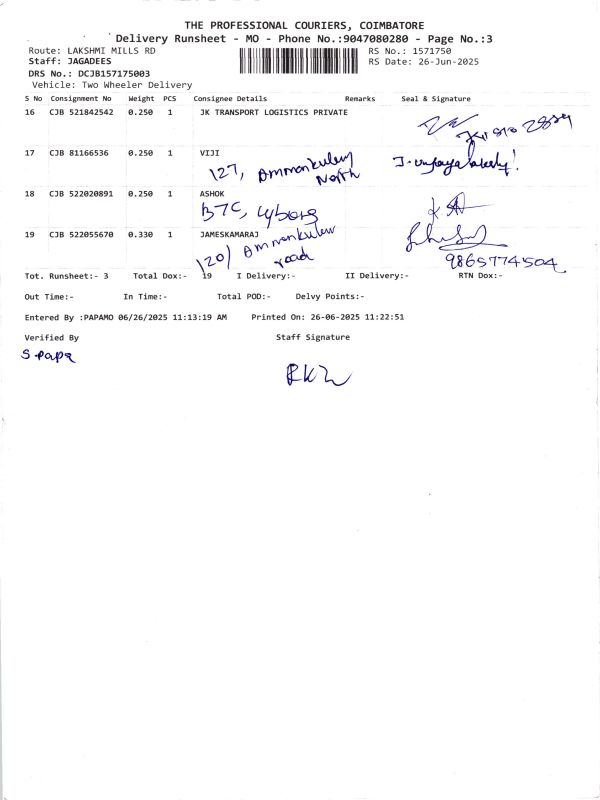 THE PROFESSIONAL COURIERS, COIMBATORE
Delivery Runsheet - MO - Phone No.:9047080280 - Page No.:3
Route: LAKSHMI MILLS RD RS No.: 1571750
Staff: JAGADEES RS Date: 26-Jun-2025
DRS No.: DCJB157175003
Vehicle: Two Wheeler Delivery
S No Consignment No Weight PCS Consignee Details Remarks Seal & Signature
16 CJB 521842542 0.250 1 JK TRANSPORT LOGISTICS PRIVATE
17 CJB 81166536 0.250 1 VIJI
127, Ammankulam North
18 CJB 522020891 0.250 1 ASHOK
B7C, Cyborg
19 CJB 522055670 0.330 1 JAMESKAMARAJ
120/ Ammankulam road
9865774504
Tot. Runsheet:- 3 Total Dox:- 19 I Delivery:- II Delivery:- RTN Dox:-
Out Time:- In Time:- Total POD:- Delvy Points:-
Entered By :PAPAMO 06/26/2025 11:13:19 AM Printed On: 26-06-2025 11:22:51
Verified By Staff Signature
S. Papa